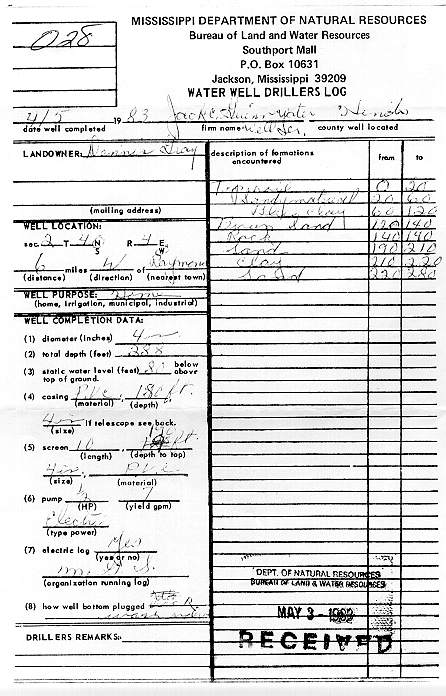 028
MISSISSIPPI DEPARTMENT OF NATURAL RESOURCES
Bureau of Land and Water Resources
Southport Mall
P.O. Box 10631
Jackson, Mississippi 39209
WATER WELL DRILLERS LOG
4/5 1983 Water Hinds
date well completed firm name Well Ser, county well located
LANDOWNER: Dennis Gray description of formations encountered from to
Topsoil 0 20
Sandy 20 60
(mailing address) Blue Clay 60 120
WELL LOCATION: Sand 120 140
sec. 2 T 4 N/S R 4 E/W Rock 140 190
Sand 190 210
6 miles W of Raymond Clay 210 220
(distance) (direction) (nearest town) Sand 220 280
WELL PURPOSE: Home
(home, irrigation, municipal, industrial)
WELL COMPLETION DATA:
(1) diameter (inches) 4 in
(2) total depth (feet) 288
(3) static water level (feet) 80 below above top of ground.
(4) casing P.V.C. 180 ft.
(material) (depth)
4 in If telescope see back.
(size)
(5) screen 10 190 ft.
(length) (depth to top)
4 in P.V.C.
(size) (material)
(6) pump 1/2 7
(HP) (yield gpm)
Electric
(type power)
(7) electric log Yes
(yes or no)
(organization running log)
(8) how well bottom plugged
wash
DRILLERS REMARKS:
DEPT. OF NATURAL RESOURCES
BUREAU OF LAND & WATER RESOURCES
MAY 3
RECEIVED